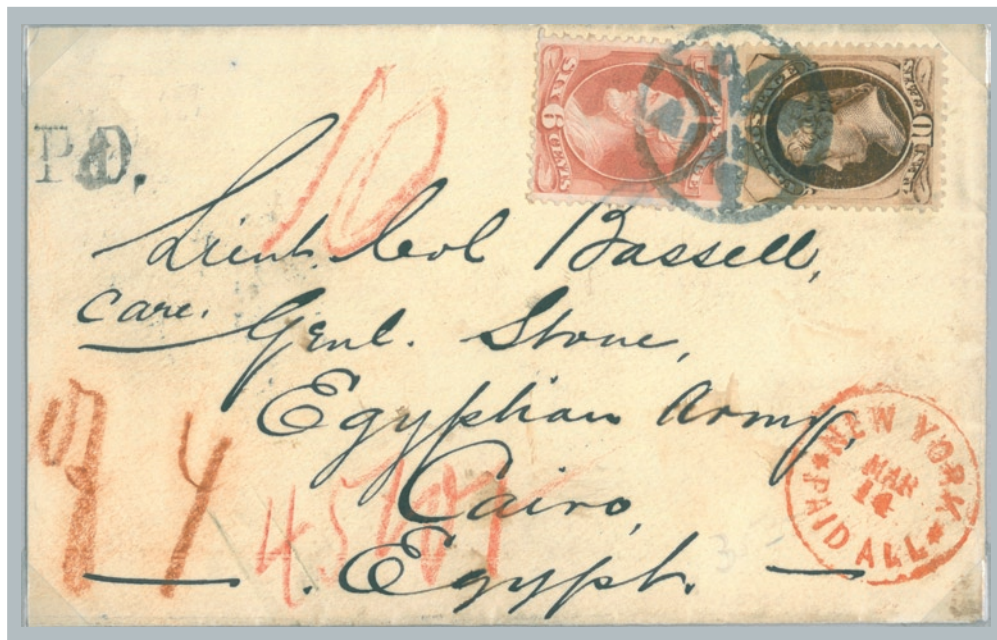 SIX 6 CENTS
10
10
P.D.
Lieut. Col Bassell,
care.
Genl. Stone,
Egyptian Army,
Cairo,
Egypt.
NEW YORK
MAR
14
PAID ALL
4